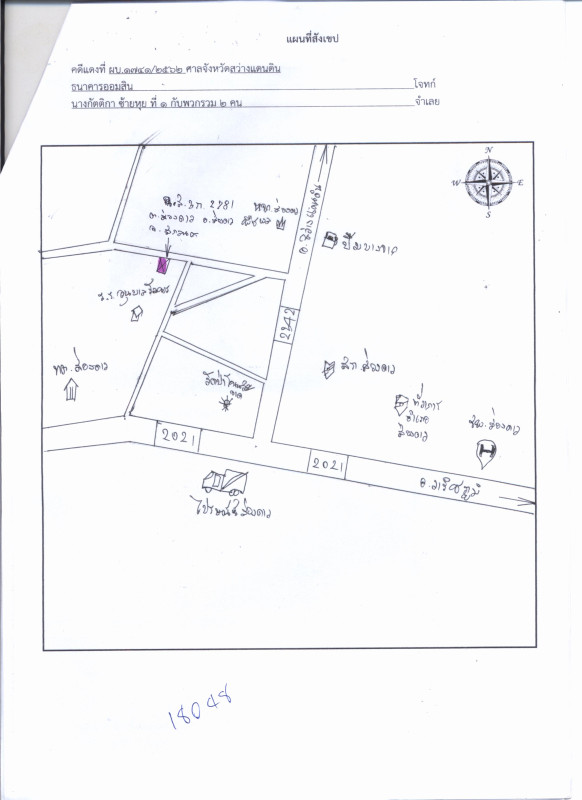 แผนที่สังเขป
คดีแดงที่ ผบ.๑๗๔๑/๒๕๖๒ ศาลจังหวัดสว่างแดนดิน
ธนาคารออมสิน โจทก์
นางกัตติกา ซ้ายหุย ที่ ๑ กับพวกรวม ๒ คน จำเลย
N
W E
S
2781
ต.ส่องดาว อ.ส่องดาว
จ.สกลนคร
อ.สว่างแดนดิน
ปั๊มบางจาก
2342
ทต.ส่องดาว
สภ.ส่องดาว
ที่ว่าการ
อำเภอ
ส่องดาว
รพ.ส่องดาว
2021
2021
อ.วาริชภูมิ
ไปรษณีย์ส่องดาว
18048